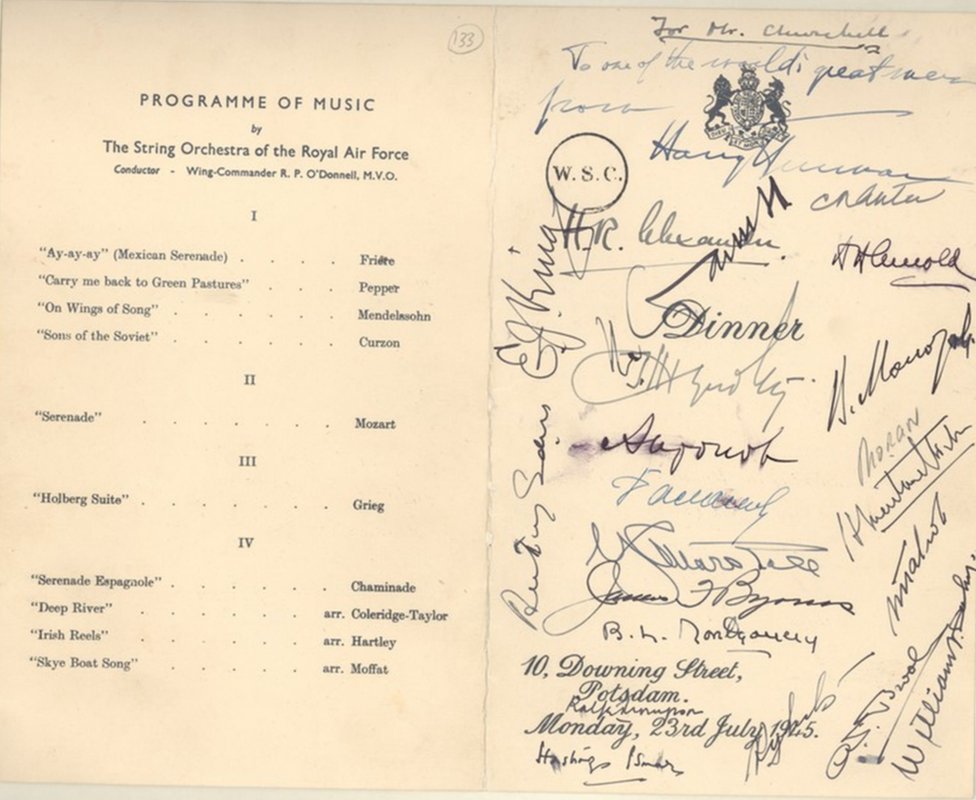 133
PROGRAMME OF MUSIC
by
The String Orchestra of the Royal Air Force
Conductor - Wing-Commander R. P. O'Donnell, M.V.O.
I
"Ay-ay-ay" (Mexican Serenade) . . . . Friere
"Carry me back to Green Pastures" . . . . Pepper
"On Wings of Song" . . . . . . Mendelssohn
"Sons of the Soviet" . . . . . . Curzon
II
"Serenade" . . . . . . . Mozart
III
"Holberg Suite" . . . . . . . Grieg
IV
"Serenade Espagnole" . . . . . . Chaminade
"Deep River" . . . . . . arr. Coleridge-Taylor
"Irish Reels" . . . . . . arr. Hartley
"Skye Boat Song" . . . . . . arr. Moffat
For Mr. Churchill
To one of the world's great men
from
Harry Truman
W.S.C.
H.R. Alexander
H H Arnold
E.J. King
Dinner
Moran
G C Marshall
James F Byrnes
B. L. Montgomery
10, Downing Street,
Potsdam.
Monday, 23rd July, 1945.
Hastings Ismay
William D. Leahy.